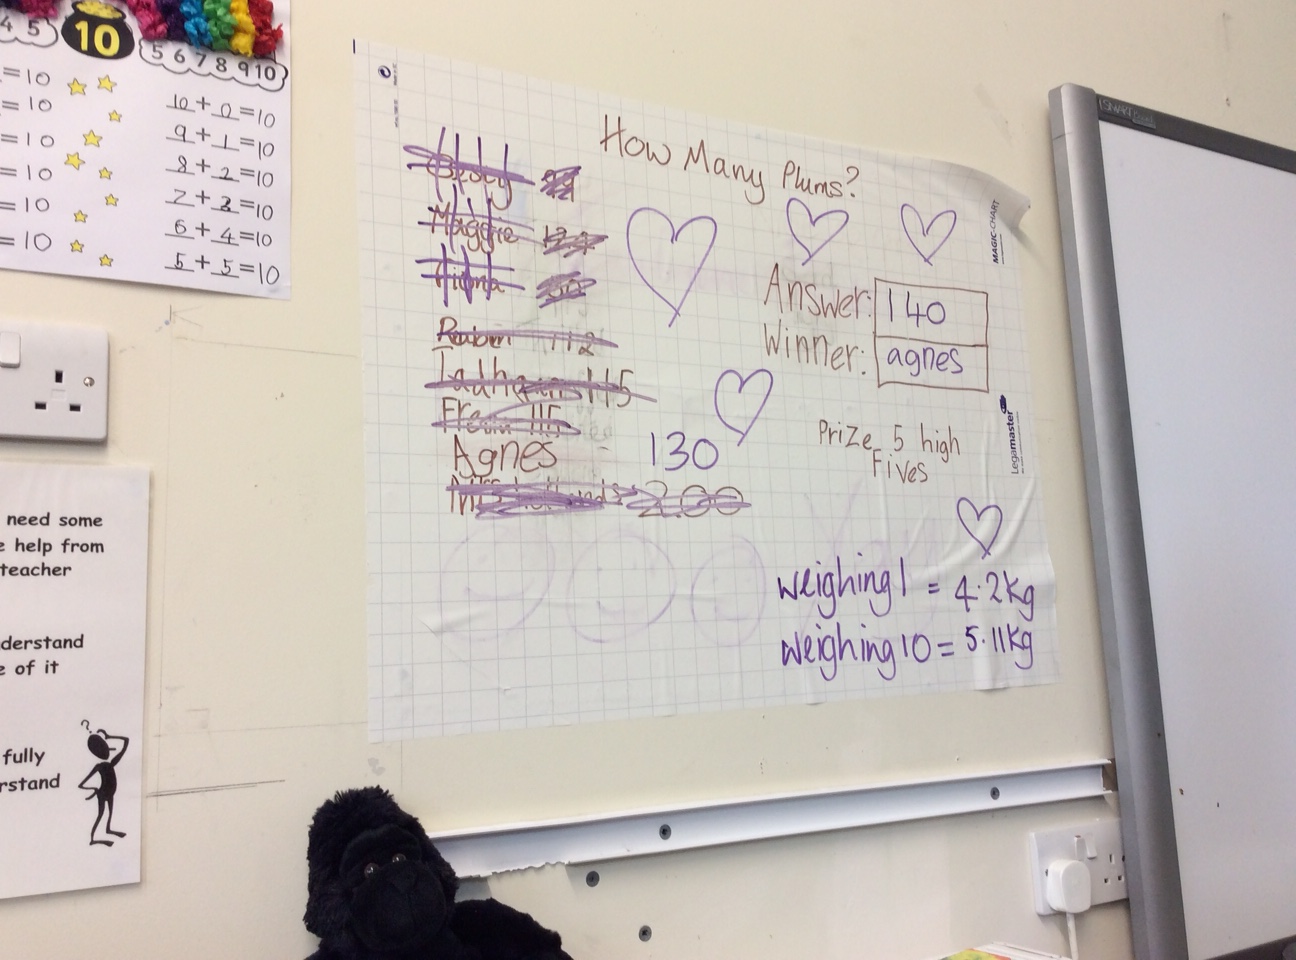 4 5
10
5 6 7 8 9 10
=10
=10
=10
=10
=10
=10
10+0=10
9+1=10
8+2=10
7+3=10
6+4=10
5+5=10
How Many Plums?
Maggie
Fiona
112
115
115
Agnes 130
200
Answer: 140
Winner: agnes
Prize 5 high
Fives
weighing 1 = 4.2kg
weighing 10 = 5.11kg
MAGIC-CHART
Legamaster
SMART
need some
help from
teacher
derstand
e of it
fully
rstand